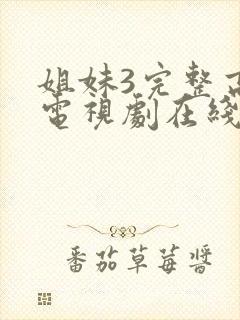 姐妹3完整高
電視劇在綫
番茄草莓醬